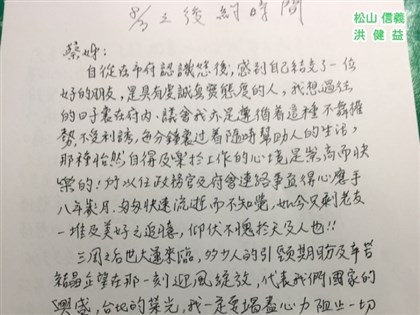 之後約時間
松山 信義
洪 健 益
蔡姊:
自從在市府認識您後,感到自己結交了一位
好的朋友,是具有虔誠真實態度的人,我想過往
的日子裏在府內、議會我亦是遵循着這種不靠權
勢、不受利誘,每分鐘裏過着隨時幫助人的生活,
那種怡然自得及樂於工作的心境是崇高而快
樂的!所以任政務官及府會連絡事宜得心應手
八年歲月,匆匆快速流逝而不知覺,如今只剩老友
一堆及美好之追憶,仰伏不愧於天及人也!!
三周之後世大運來臨,多少人的引頸期盼及辛苦
結晶企望在那一刻迎風綻放,代表我們國家的
興盛,台北的榮光,我一定要竭盡心力阻止一切